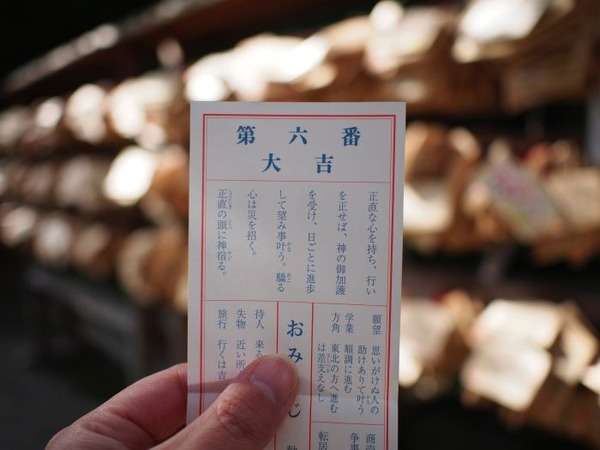 第六番
大吉
正直な心を持ち、行い
を正せば、神の御加護
を受け、日ごとに進歩
して望み事叶う。驕る
心は災を招く。
正直の頭に神宿る。
願望 思いがけぬ人の
助けありて叶う
学業 順調に進む
方角 東北の方へ進む
は差支えなし
おみ
じ
待人 来る
失物 近い所
旅行 行くは吉
商売
争事
転居